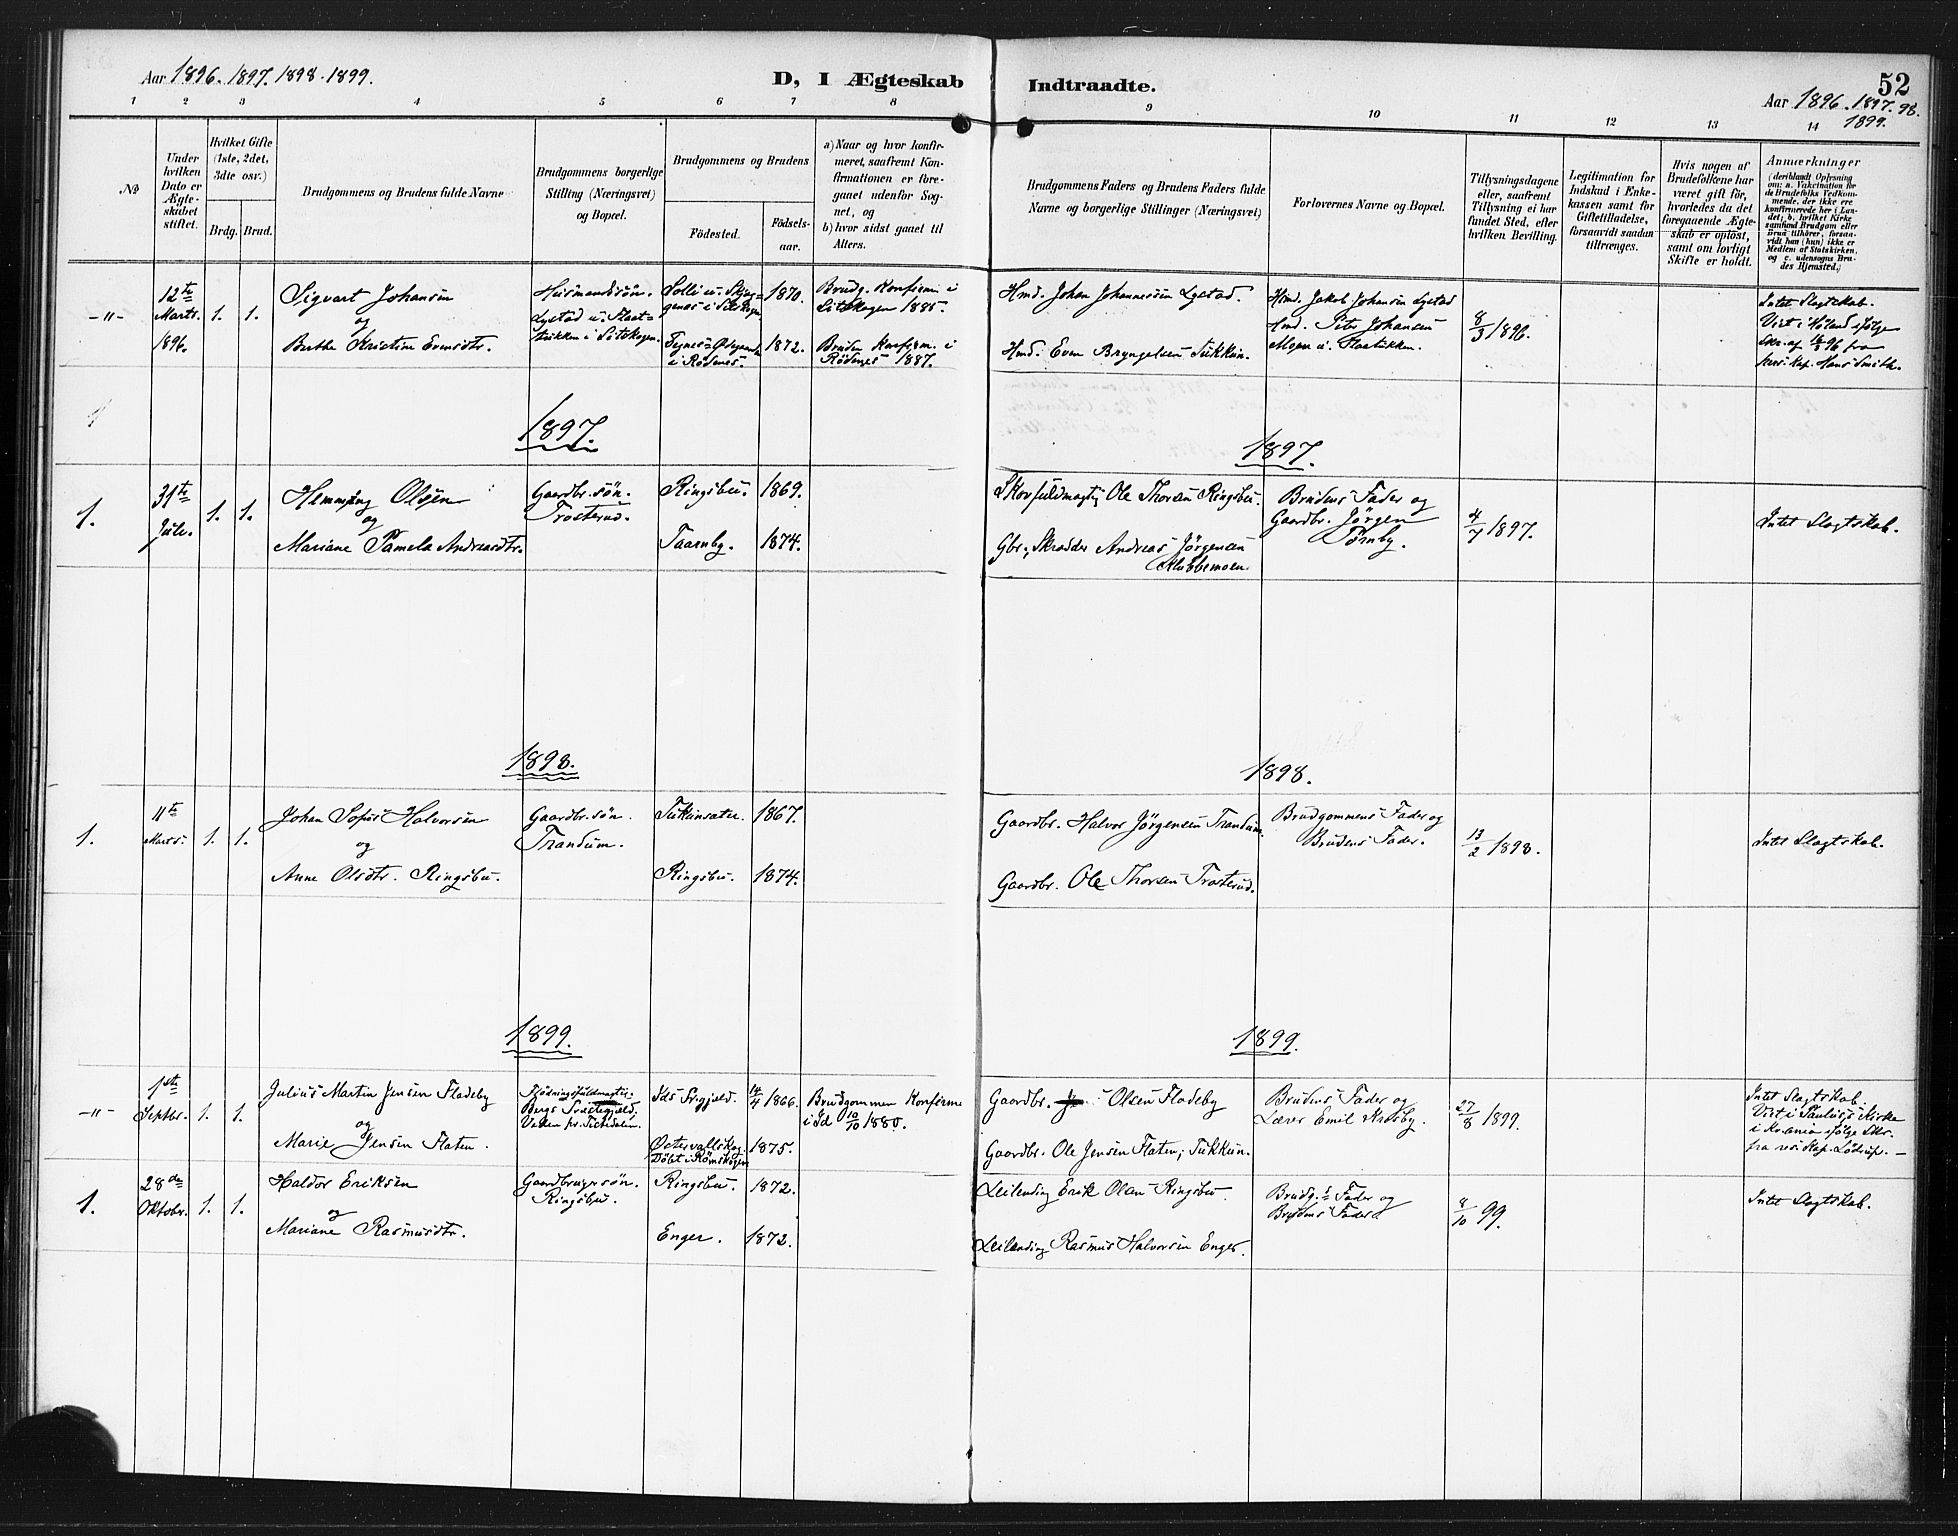 Aar 1896. 1897. 1898. 1899.
D, I Ægteskab Indtraadte.
52
Aar 1896. 1897. 98.
1899.
1 2 3 4 5 6 7 8 9 10 11 12 13 14
No
Under hvilken Dato er Ægteskabet stiftet.
Hvilket Gifte (1ste, 2det, 3die osv.)
Brdg. Brud.
Brudgommens og Brudens fulde Navne
Brudgommens borgerlige Stilling (Næringsvei) og Bopæl.
Brudgommens og Brudens
Födested.
Födsels-aar.
a) Naar og hvor konfirmeret, saafremt Konfirmationen er foregaaet udenfor Sognet, og
b) hvor sidst gaaet til Alters.
Brudgommens Faders og Brudens Faders fulde Navne og borgerlige Stillinger (Næringsvei)
Forlovernes Navne og Bopæl.
Tillysningsdagene eller, saafremt Tillysning ei har fundet Sted, efter hvilken Bevilling.
Legitimation for Indskud i Enkekassen samt for Giftetilladelse, forsaavidt saadan tiltrænges.
Hvis nogen af Brudefolkene har været gift för, hvorledes da det foregaaende Ægteskab er oplöst, samt om lovligt Skifte er holdt.
Anmærkninger
(deriblandt Oplysning om: a. Vakcination for de Brudefolks Vedkommende, der ikke ere konfirmerede her i Landet; b. hvilket Kirkesamfund Brudgom eller Brud tilhörer, forsaavidt han (hun) ikke er Medlem af Statskirken, og c. udensogns Brudes Hjemsted.)
-"- 12te Marts. 1896. 1. 1.
Sigvart Johansen
og
Berthe Kristine Evensdtr.
Husmandssön.
Lystad u. Slaatstrikken i Sitskogen.
1870.
i Rödenes. 1872.
Brudg. Konfirm. i
Sitskogen 1885.
Bruden Konfirm. i
Rödenes 1887.
Hmd. Johan Johannessen Lystad.
Hmd. Even Bryngelsen Tukkun.
Hmd. Jakob Johansen Lystad
Hmd. Peter Johansen
8/3 1896.
Intet Slagtskab.
Viet i Höland ifölge
pers. Kap. Hans Smith.
1897.
1897.
1. 31te Juli. 1. 1.
Hemming Olsen
og
Mariane Pamela Andreasdtr.
Gaardbr. sön.
Trosterud.
Ringsbu. 1869.
Taarnby. 1874.
Skovfuldmægtig Ole Thorsen Ringsbu.
Gbr., Skrædder Andreas Jörgensen
Klubbemoen.
Brudens Fader og
Gaardbr. Jörgen
Törnby.
4/7 1897.
Intet Slagtskab.
1898.
1898.
1. 11te Marts. 1. 1.
Johan Sofus Halvorsen
og
Anne Olsdtr. Ringsbu.
Gaardbr. sön.
Trandum.
Tukkunsæter. 1867.
Ringsbu. 1874.
Gaardbr. Halvor Jörgensen Trandum.
Gaardbr. Ole Thorsen Trosterud.
Brudgommens Fader og
Brudens Fader.
13/2 1898.
Intet Slagtskab.
1899.
1899.
-"- 1ste Septbr. 1. 1.
Julius Martin Jensen Fladeby
og
Marie Jensen Flaten.
Flödningsfuldmægtig.
Ids Prgjeld. 14/4 1866.
Östervallskog.
Döbt i Römskogen 1875.
Brudgommen Konfirm.
i Id 10/10 1880.
Gaardbr. Olsen Fladeby
Gaardbr. Ole Jensen Flaten, Tukkun.
Brudens Fader og
Lærer Emil Krosby.
27/8 1899.
Intet Slagtskab.
Viet i Paulus Kirke
i Kr.ania ifölge Skr.
fra res. Kap. Lödrup. —
1. 28de Oktober. 1. 1.
Haldor Eriksen
og
Mariane Rasmusdtr.
Gaardbrugersön.
Ringsbu.
Ringsbu. 1872.
Enger. 1872.
Leilending Erik Olsen Ringsbu.
Leilending Rasmus Halvorsen Enger.
Brudg.s Fader og
Brudens Fader.
8/10 99.
Intet Slagtskab.